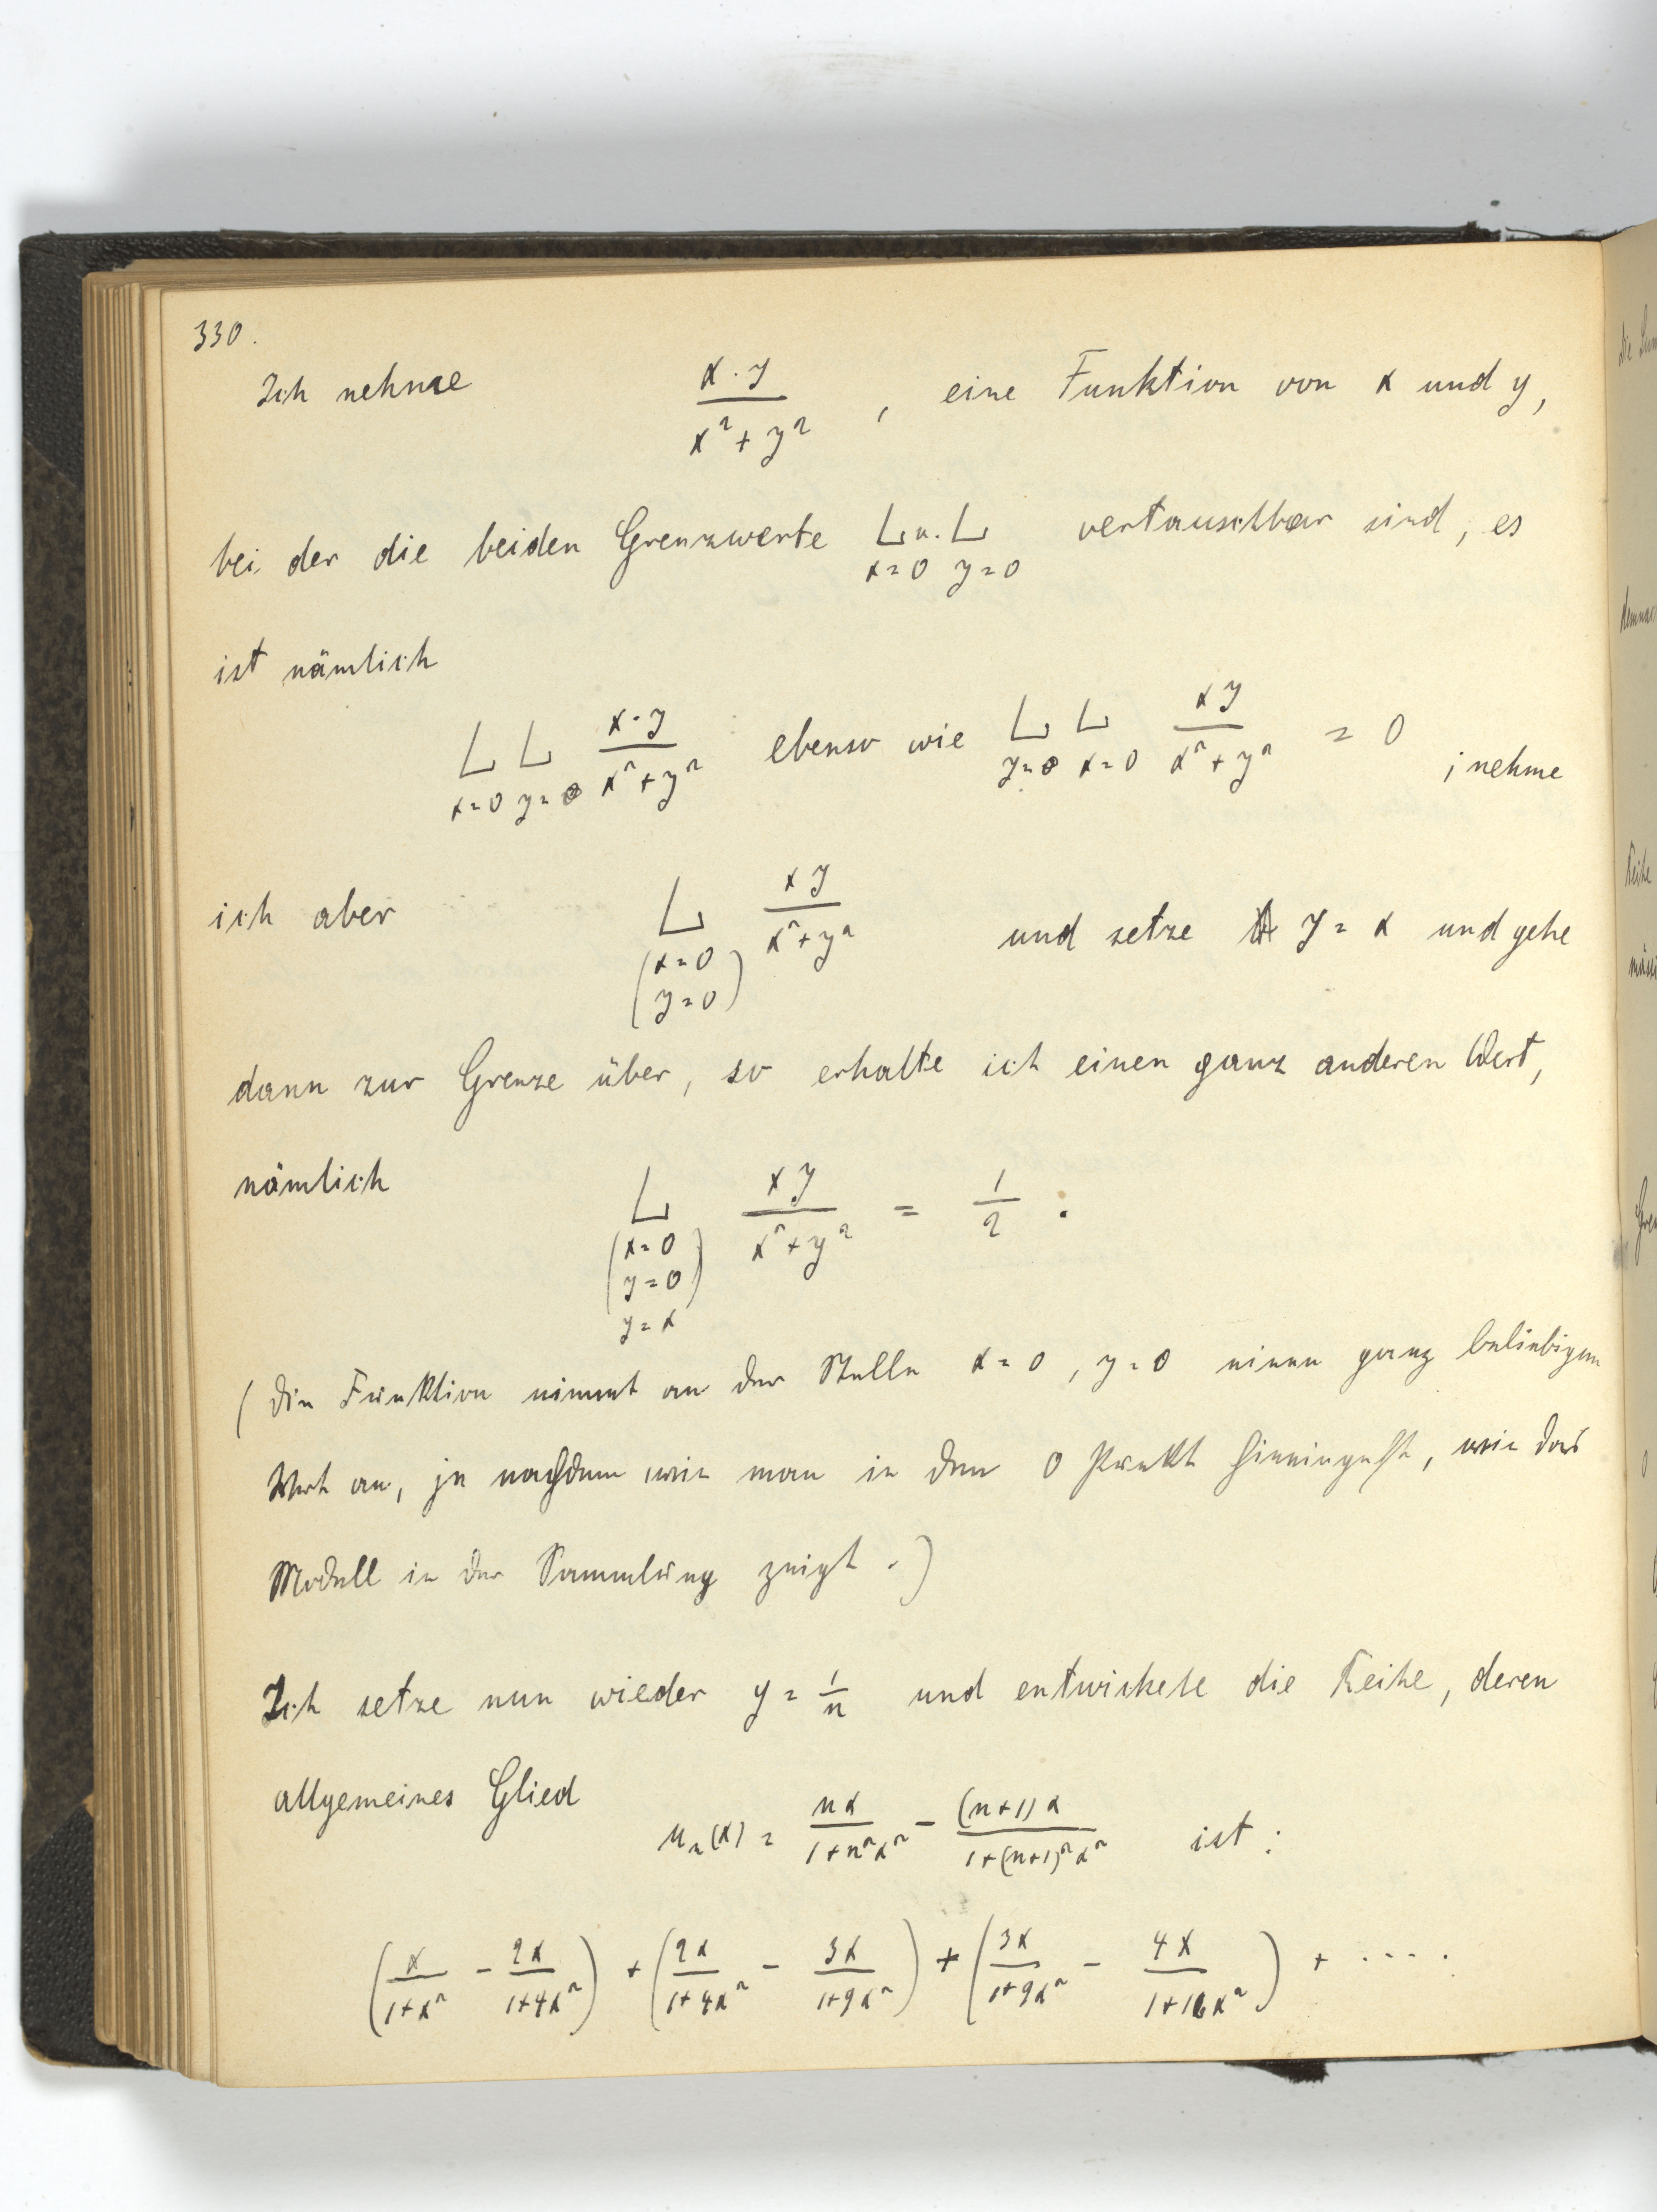 330.
Ich nehme x·y / x²+y² , eine Funktion von x und y,
bei der die beiden Grenzwerte L x=0 u. L y=0 vertauschbar sind, es
ist nämlich
L x=0 L y=0 x·y / x²+y² ebenso wie L y=0 L x=0 xy / x²+y² = 0 ; nehme
ich aber L (x=0 y=0) xy / x²+y² und setze y = x und gehe
dann zur Grenze über, so erhalte ich einen ganz anderen Wert,
nämlich L (x=0 y=0) y=x xy / x²+y² = 1/2 .
(Die Funktion nimmt an der Stelle x=0, y=0 einen ganz beliebigen
Wert an, je nachdem wie man in den 0 Punkt hineingeht, wie das
Modell in der Sammlung zeigt.)
Ich setze nun wieder y = 1/n und entwickele die Reihe, deren
allgemeines Glied uₙ(x) = nx / 1+n²x² − (n+1)x / 1+(n+1)²x² ist :
(x / 1+x² − 2x / 1+4x²) + (2x / 1+4x² − 3x / 1+9x²) + (3x / 1+9x² − 4x / 1+16x²) + ....